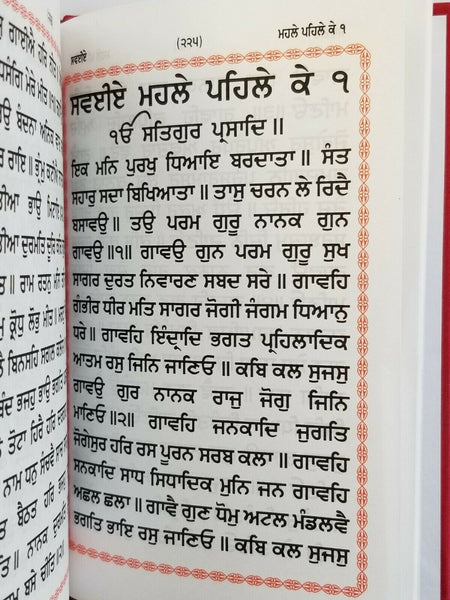 ਗਾਈਐ ਹਰਿ
ਮੇਰੇ ਮੰਤ
ਬੰਦਨਾ ਅਨਿਕ
ਰਾਇ॥
ਭਾਉ
ਦੁਰਮਤਿ
॥ ਰਾਮ ਰਤਨੁ
ਕ੍ਰੋਧੁ ਲੋਭੁ
ਬਿਨਸਹਿ ਸਗਲ
ਭਜਹੁ ਭਾਉ
ਤੋਟਾ ਹਿਰੈ
ਨਾਮ ਧਨੁ ਸੰਚਵੈ
ਬੈਠਤ ਹਰਿ
॥ ਨਾਨਕ
ਬਸੇ ਚੀਤਿ
ਸਵਈਏ (੨੨੫) ਮਹਲੇ ਪਹਿਲੇ ਕੇ ੧
ਸਵਈਏ ਮਹਲੇ ਪਹਿਲੇ ਕੇ ੧
ੴ ਸਤਿਗੁਰ ਪ੍ਰਸਾਦਿ॥
ਇਕ ਮਨਿ ਪੁਰਖੁ ਧਿਆਇ ਬਰਦਾਤਾ॥ ਸੰਤ
ਸਹਾਰੁ ਸਦਾ ਬਿਖਿਆਤਾ॥ ਤਾਸੁ ਚਰਨ ਲੇ ਰਿਦੈ
ਬਸਾਵਉ॥ ਤਉ ਪਰਮ ਗੁਰੂ ਨਾਨਕ ਗੁਨ
ਗਾਵਉ॥੧॥ ਗਾਵਉ ਗੁਨ ਪਰਮ ਗੁਰੂ ਸੁਖ
ਸਾਗਰ ਦੁਰਤ ਨਿਵਾਰਣ ਸਬਦ ਸਰੇ॥ ਗਾਵਹਿ
ਗੰਭੀਰ ਧੀਰ ਮਤਿ ਸਾਗਰ ਜੋਗੀ ਜੰਗਮ ਧਿਆਨੁ
ਧਰੇ॥ ਗਾਵਹਿ ਇੰਦ੍ਰਾਦਿ ਭਗਤ ਪ੍ਰਹਿਲਾਦਿਕ
ਆਤਮ ਰਸੁ ਜਿਨਿ ਜਾਣਿਓ॥ ਕਬਿ ਕਲ ਸੁਜਸੁ
ਗਾਵਉ ਗੁਰ ਨਾਨਕ ਰਾਜੁ ਜੋਗੁ ਜਿਨਿ
ਮਾਣਿਓ॥੨॥ ਗਾਵਹਿ ਜਨਕਾਦਿ ਜੁਗਤਿ
ਜੋਗੇਸੁਰ ਹਰਿ ਰਸ ਪੂਰਨ ਸਰਬ ਕਲਾ॥ ਗਾਵਹਿ
ਸਨਕਾਦਿ ਸਾਧ ਸਿਧਾਦਿਕ ਮੁਨਿ ਜਨ ਗਾਵਹਿ
ਅਛਲ ਛਲਾ॥ ਗਾਵੈ ਗੁਣ ਧੋਮੁ ਅਟਲ ਮੰਡਲਵੈ
ਭਗਤਿ ਭਾਇ ਰਸੁ ਜਾਣਿਓ॥ ਕਬਿ ਕਲ ਸੁਜਸੁ